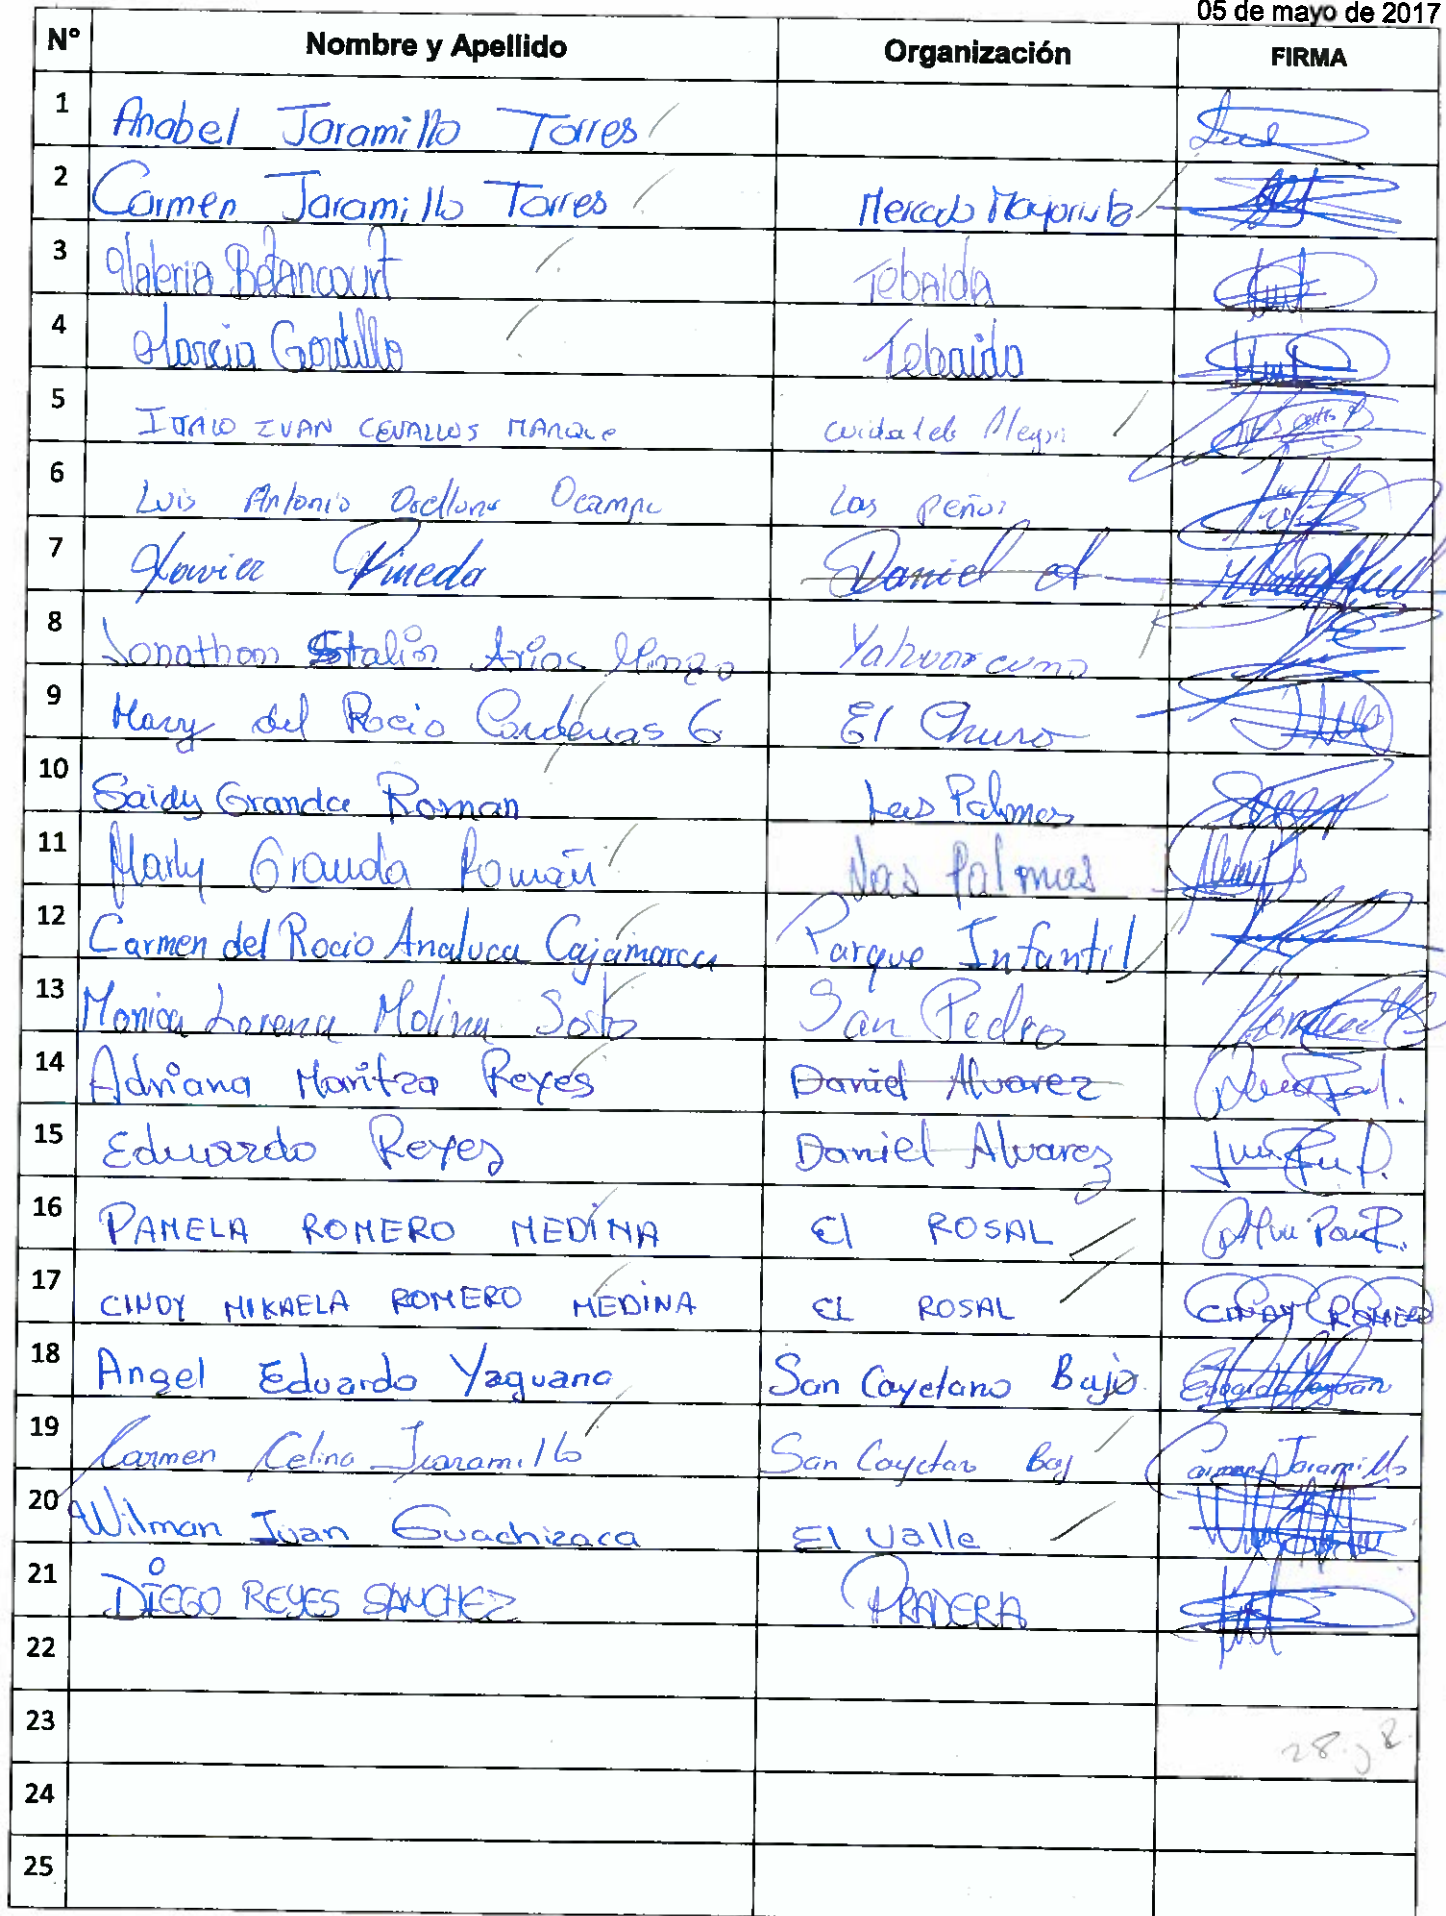 05 de mayo de 2017
N° Nombre y Apellido Organización FIRMA
1 Anabel Jaramillo Torres
2 Carmen Jaramillo Torres Mercado Mayorista
3 Valeria Betancourt Tebaida
4 Marcia Gordillo Tebaida
5 ITALO IVAN CEVALLOS
6 Luis Antonio Orellana Ocampo Las Peñas
7 Xavier Pineda Daniel A
8 Jonathan Stalin Arias Yahuarcuna
9 Mary del Rocio Cardenas G El Churo
10 Saidy Granda Roman Las Palmas
11 Marly Granda Román Las Palmas
12 Carmen del Rocio Analuca Cajamarca Parque Infantil
13 Monica Lorena Molina Soto San Pedro
14 Adriana Maritza Reyes Daniel Alvarez
15 Eduardo Reyes Daniel Alvarez
16 PAMELA ROMERO MEDINA El ROSAL
17 CINDY MIKAELA ROMERO MEDINA EL ROSAL CINDY ROMERO
18 Angel Eduardo Yaguana San Cayetano Bajo
19 Carmen Celina Jaramillo San Cayetano Baj Carmen Jaramillo
20 Wilman Juan Guachizaca El Valle
21 DIEGO REYES SANCHEZ PRADERA
22
23
24
25